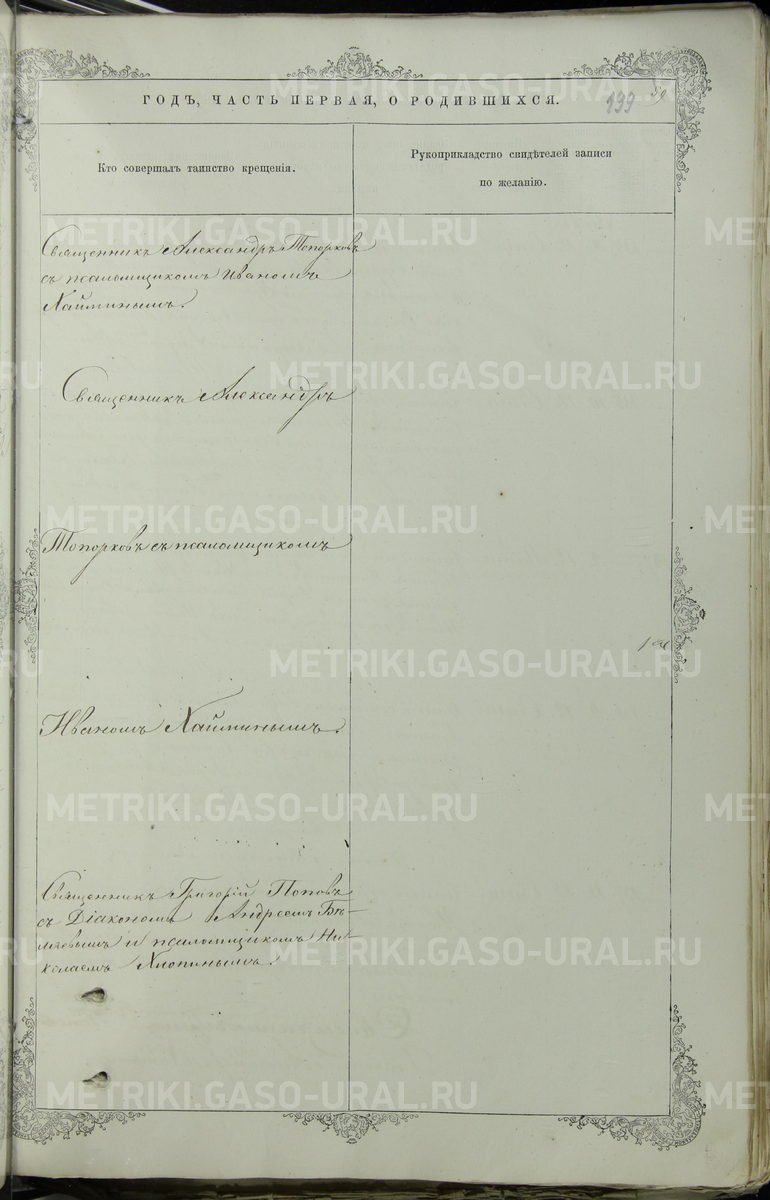 ГОДЪ, ЧАСТЬ ПЕРВАЯ, О РОДИВШИХСЯ.
199
59
Кто совершалъ таинство крещенія.
Рукоприкладство свидѣтелей записи
по желанію.
Священникъ Александръ Топорковъ
съ псаломщикомъ Иваномъ
Хайминымъ.
Священникъ Александръ
Топорковъ съ псаломщикомъ
Иваномъ Хайминымъ.
Священникъ Григорій Поповъ
съ Діакономъ Андреемъ Бѣ-
ляевымъ и псаломщикомъ Ни-
колаемъ Хлопинымъ.
METRIKI.GASO-URAL.RU